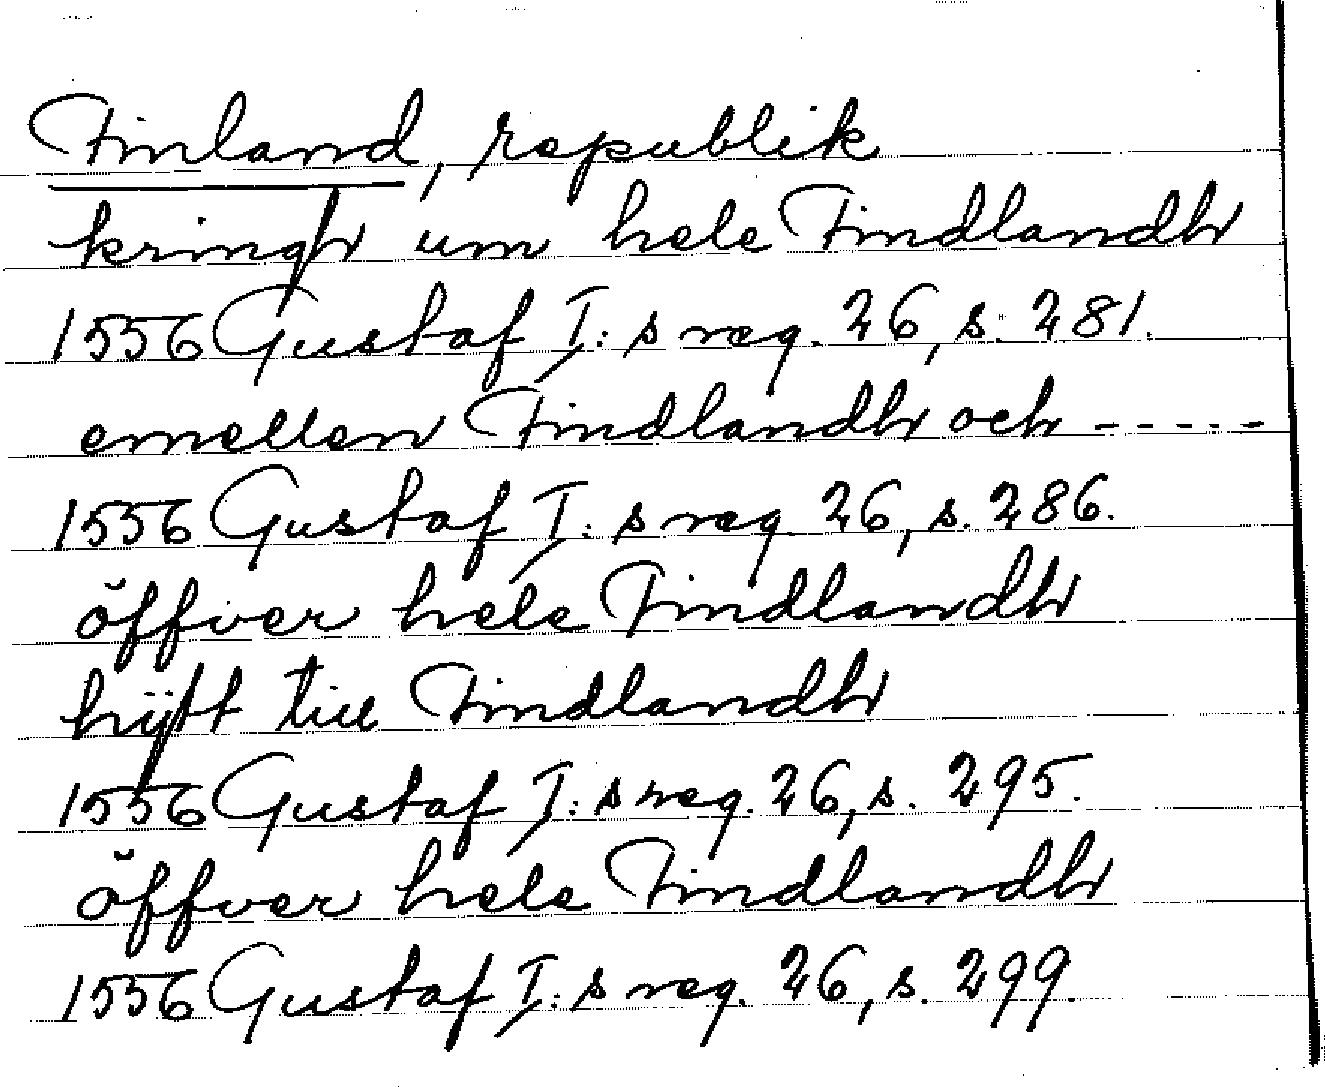 Finland, republik
kringh um hele Findlandh
1556 Gustaf I:s reg. 26, s. 281.
emellen Findlandh och -----
1556 Gustaf I:s reg. 26, s. 286.
öffver hele Findlandh
hijtt till Findlandh
1556 Gustaf I:s reg. 26, s. 295.
öffver hele Findlandh
1556 Gustaf I:s reg. 26, s. 299.